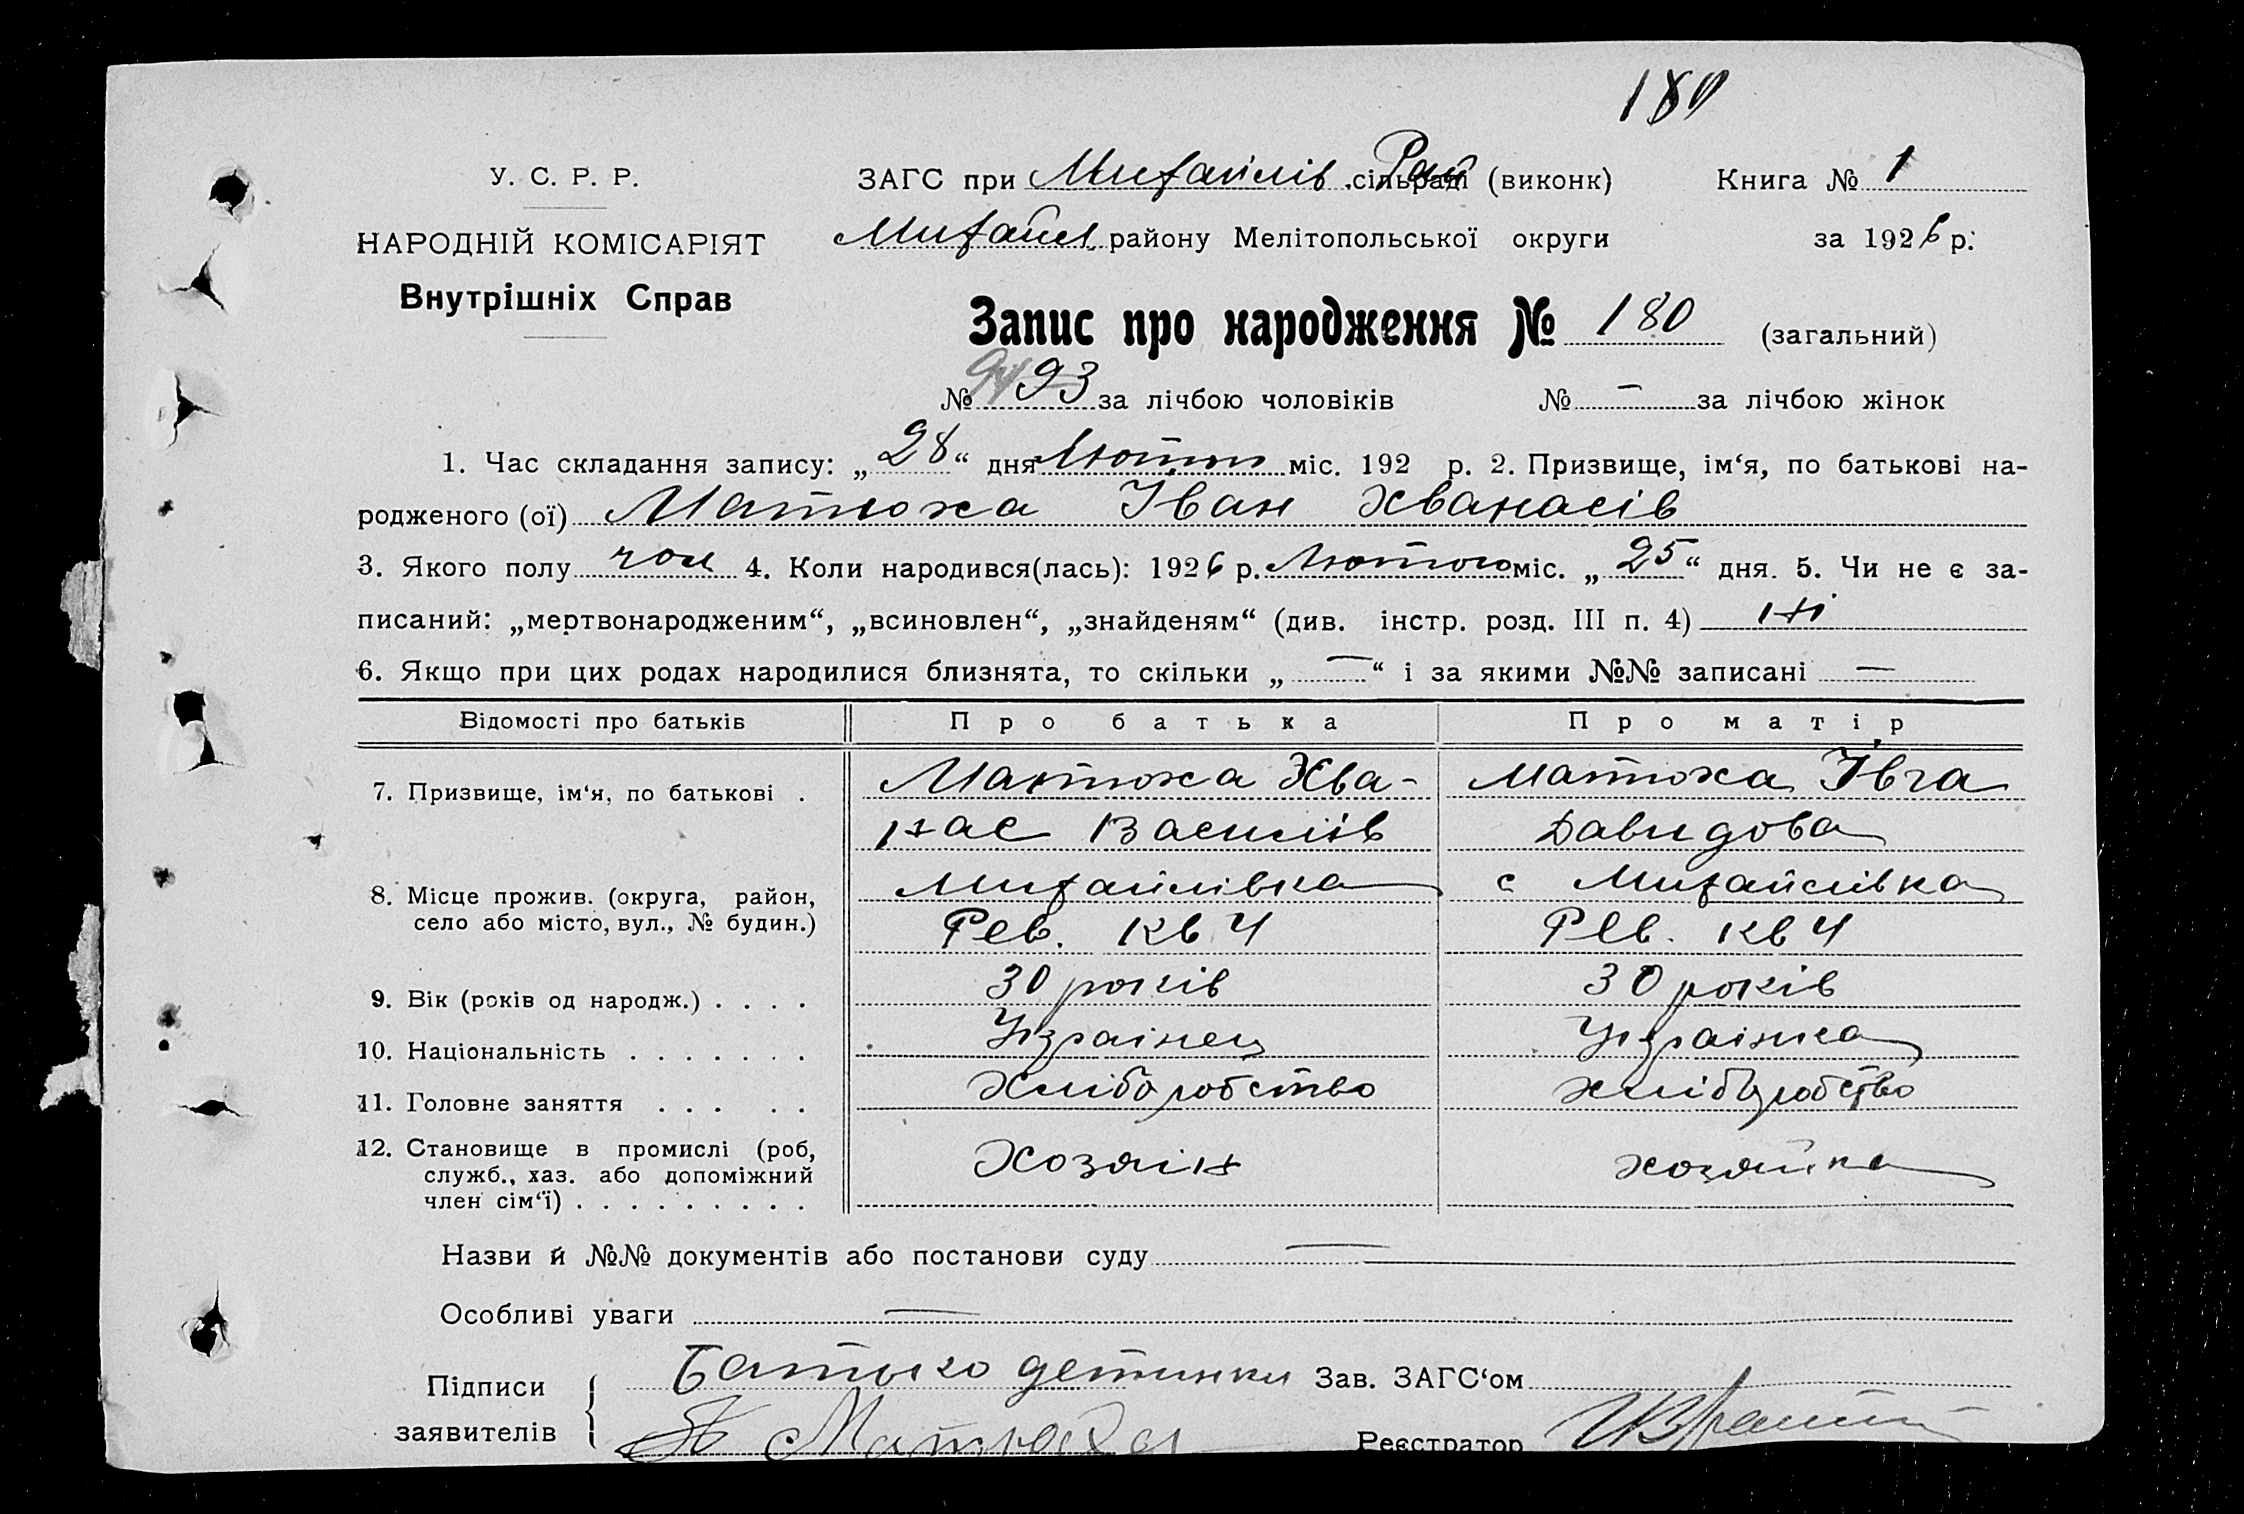 180
У. С. Р. Р.
ЗАГС при Михайлів. сільраді Рай (виконк) Книга № 1
НАРОДНІЙ КОМІСАРІЯТ
Михайл. району Мелітопольської округи за 1926 р.
Внутрішніх Справ
Запис про народження № 180 (загальний)
№ 94 93 за лічбою чоловіків № — за лічбою жінок
1. Час складання запису: „28“ дня Лютого міс. 192 р. 2. Призвище, ім‘я, по батькові на-
родженого (ої) Матюха Іван Хванасів
3. Якого полу чол 4. Коли народився(лась): 1926 р. Лютого міс. „25“ дня. 5. Чи не є за-
писаний: „мертвонародженим“, „всиновлен“, „знайденям“ (див. інстр. розд. III п. 4) ні
6. Якщо при цих родах народилися близнята, то скільки „—“ і за якими №№ записані —
Відомості про батьків Про батька Про матір
7. Призвище, ім‘я, по батькові . Матюха Хва- Матюха Івга
нас Василів Давидова
8. Місце прожив. (округа, район, Михайлівка с Михайлівка
село або місто, вул., № будин.) Рев. кв 4 Рев. кв 4
9. Вік (років од народж.) . . . . 30 років 30 років
10. Національність . . . . . . . Українец Українка
11. Головне заняття . . . . . Хліборобство хліборобство
12. Становище в промислі (роб, Хозяін хозяйка
служб., хаз. або допоміжний
член сім‘ї) . . . . . . . . .
Назви й №№ документів або постанови суду —
Особливі уваги —
Підписи Батько детинки Зав. ЗАГС‘ом
заявителів Матюха Реєстратор